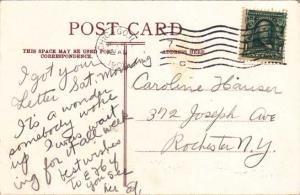 POST CARD
THIS SPACE MAY BE USED FOR
CORRESPONDENCE.
ADDRESS HERE.
I got your
Letter Sat. morning
It's a wonder
somebody woke
up I was wait
ing for it all week
best wishes
to E & G if
you see
her
Caroline Hauser
372 Joseph Ave
Rochester N.Y.